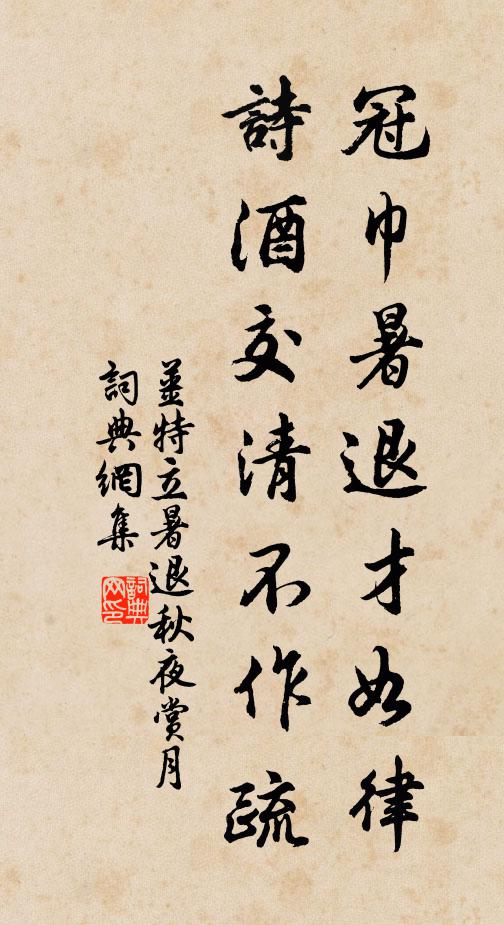 冠巾暑退才如律
詩酒交清不作疏
姜特立暑退秋夜賞月
詞典網集
詞典網印